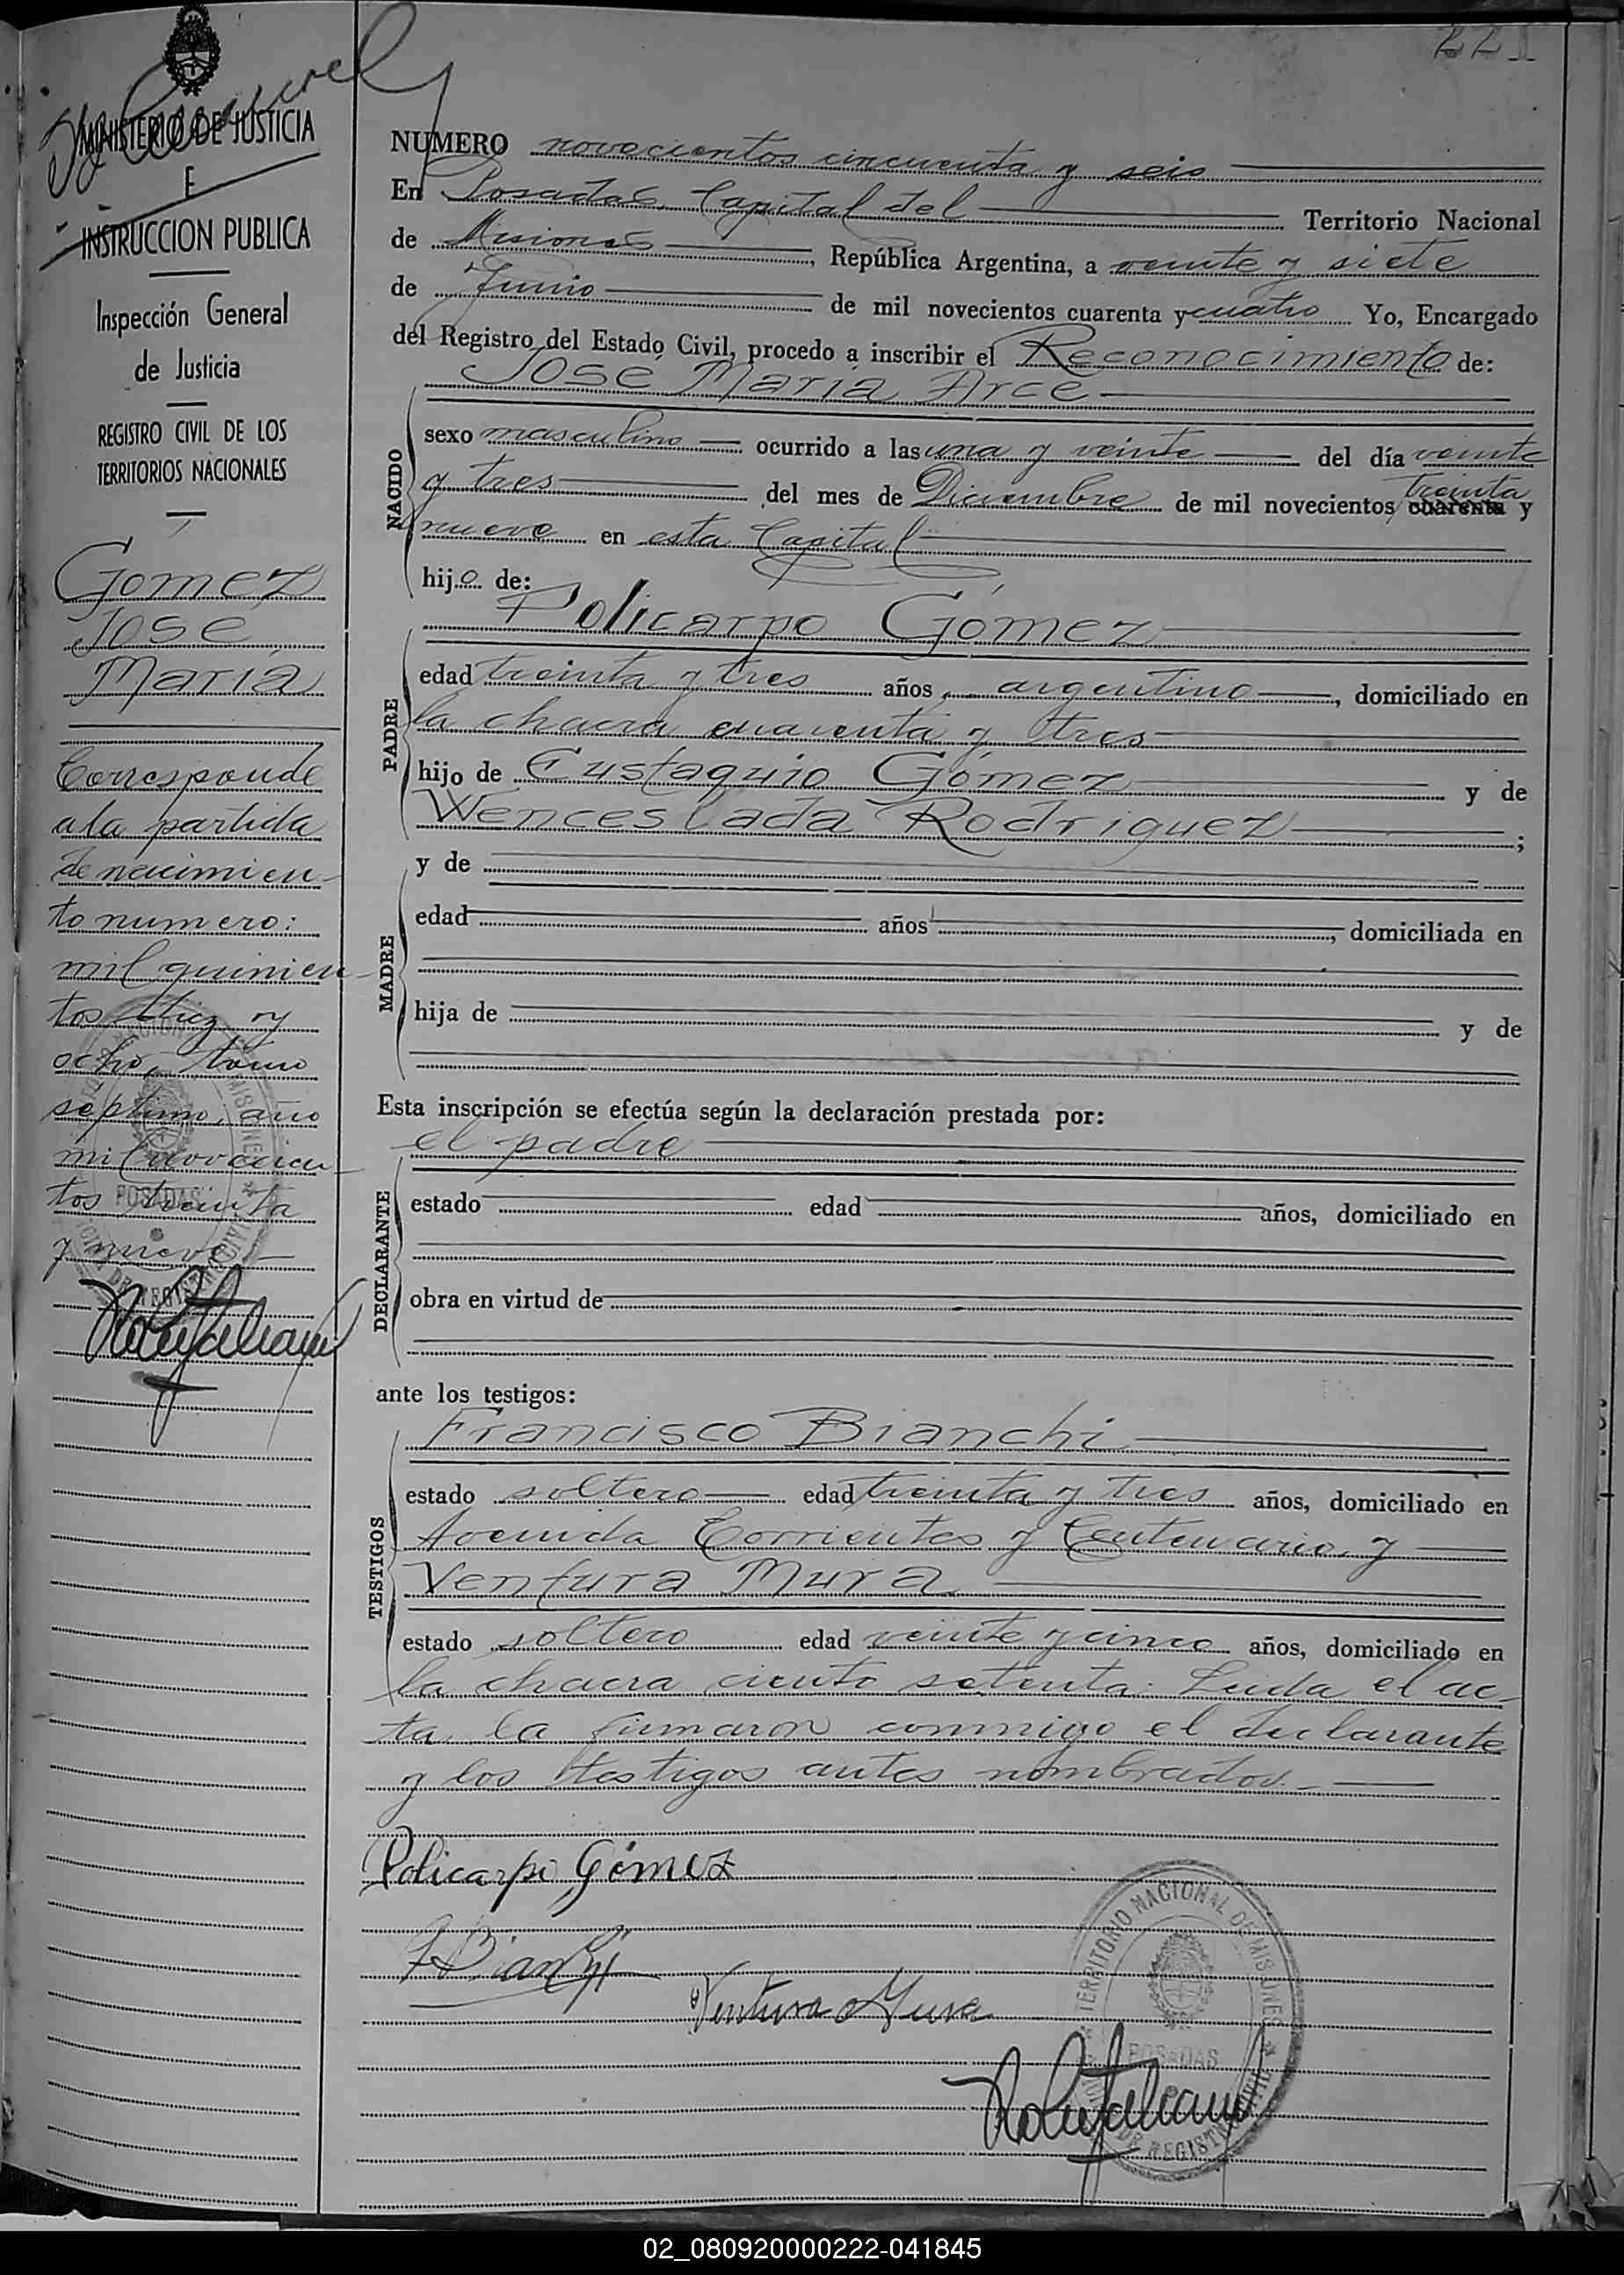 221
MINISTERIO DE JUSTICIA
E
INSTRUCCION PUBLICA
Inspección General
de Justicia
REGISTRO CIVIL DE LOS
TERRITORIOS NACIONALES
Gómez
José
María
Corresponde
a la partida
de nacimien-
to numero:
mil quinien-
tos diez y
ocho, tomo
séptimo, año
mil novecien-
tos treinta
y nueve
NUMERO novecientos cincuenta y seis
En Posadas, Capital del Territorio Nacional
de Misiones, República Argentina, a veinte y siete
de Junio de mil novecientos cuarenta y cuatro Yo, Encargado
del Registro del Estado Civil, procedo a inscribir el Reconocimiento de:
José María Arce
NACIDO
sexo masculino ocurrido a las una y veinte del día veinte
y tres del mes de Diciembre de mil novecientos treinta cuarenta y
nueve en esta Capital
hijo de:
Policarpo Gómez
PADRE
edad treinta y tres años, argentino, domiciliado en
la chacra cuarenta y tres
hijo de Eustaquio Gómez y de
Wenceslada Rodriguez;
y de
MADRE
edad años, domiciliada en
hija de y de
Esta inscripción se efectúa según la declaración prestada por:
el padre
DECLARANTE
estado edad años, domiciliado en
obra en virtud de
ante los testigos:
Francisco Bianchi
TESTIGOS
estado soltero edad treinta y tres años, domiciliado en
Avenida Corrientes y Centenario, y
Ventura Mura
estado soltero edad veinte y cinco años, domiciliado en
la chacra ciento setenta. Leida el ac-
ta, la firmaron conmigo el declarante
y los testigos antes nombrados.
Policarpo Gómez
FBianchi
Ventura Mura
TERRITORIO NACIONAL DE MISIONES
POSADAS
02_080920000222-041845